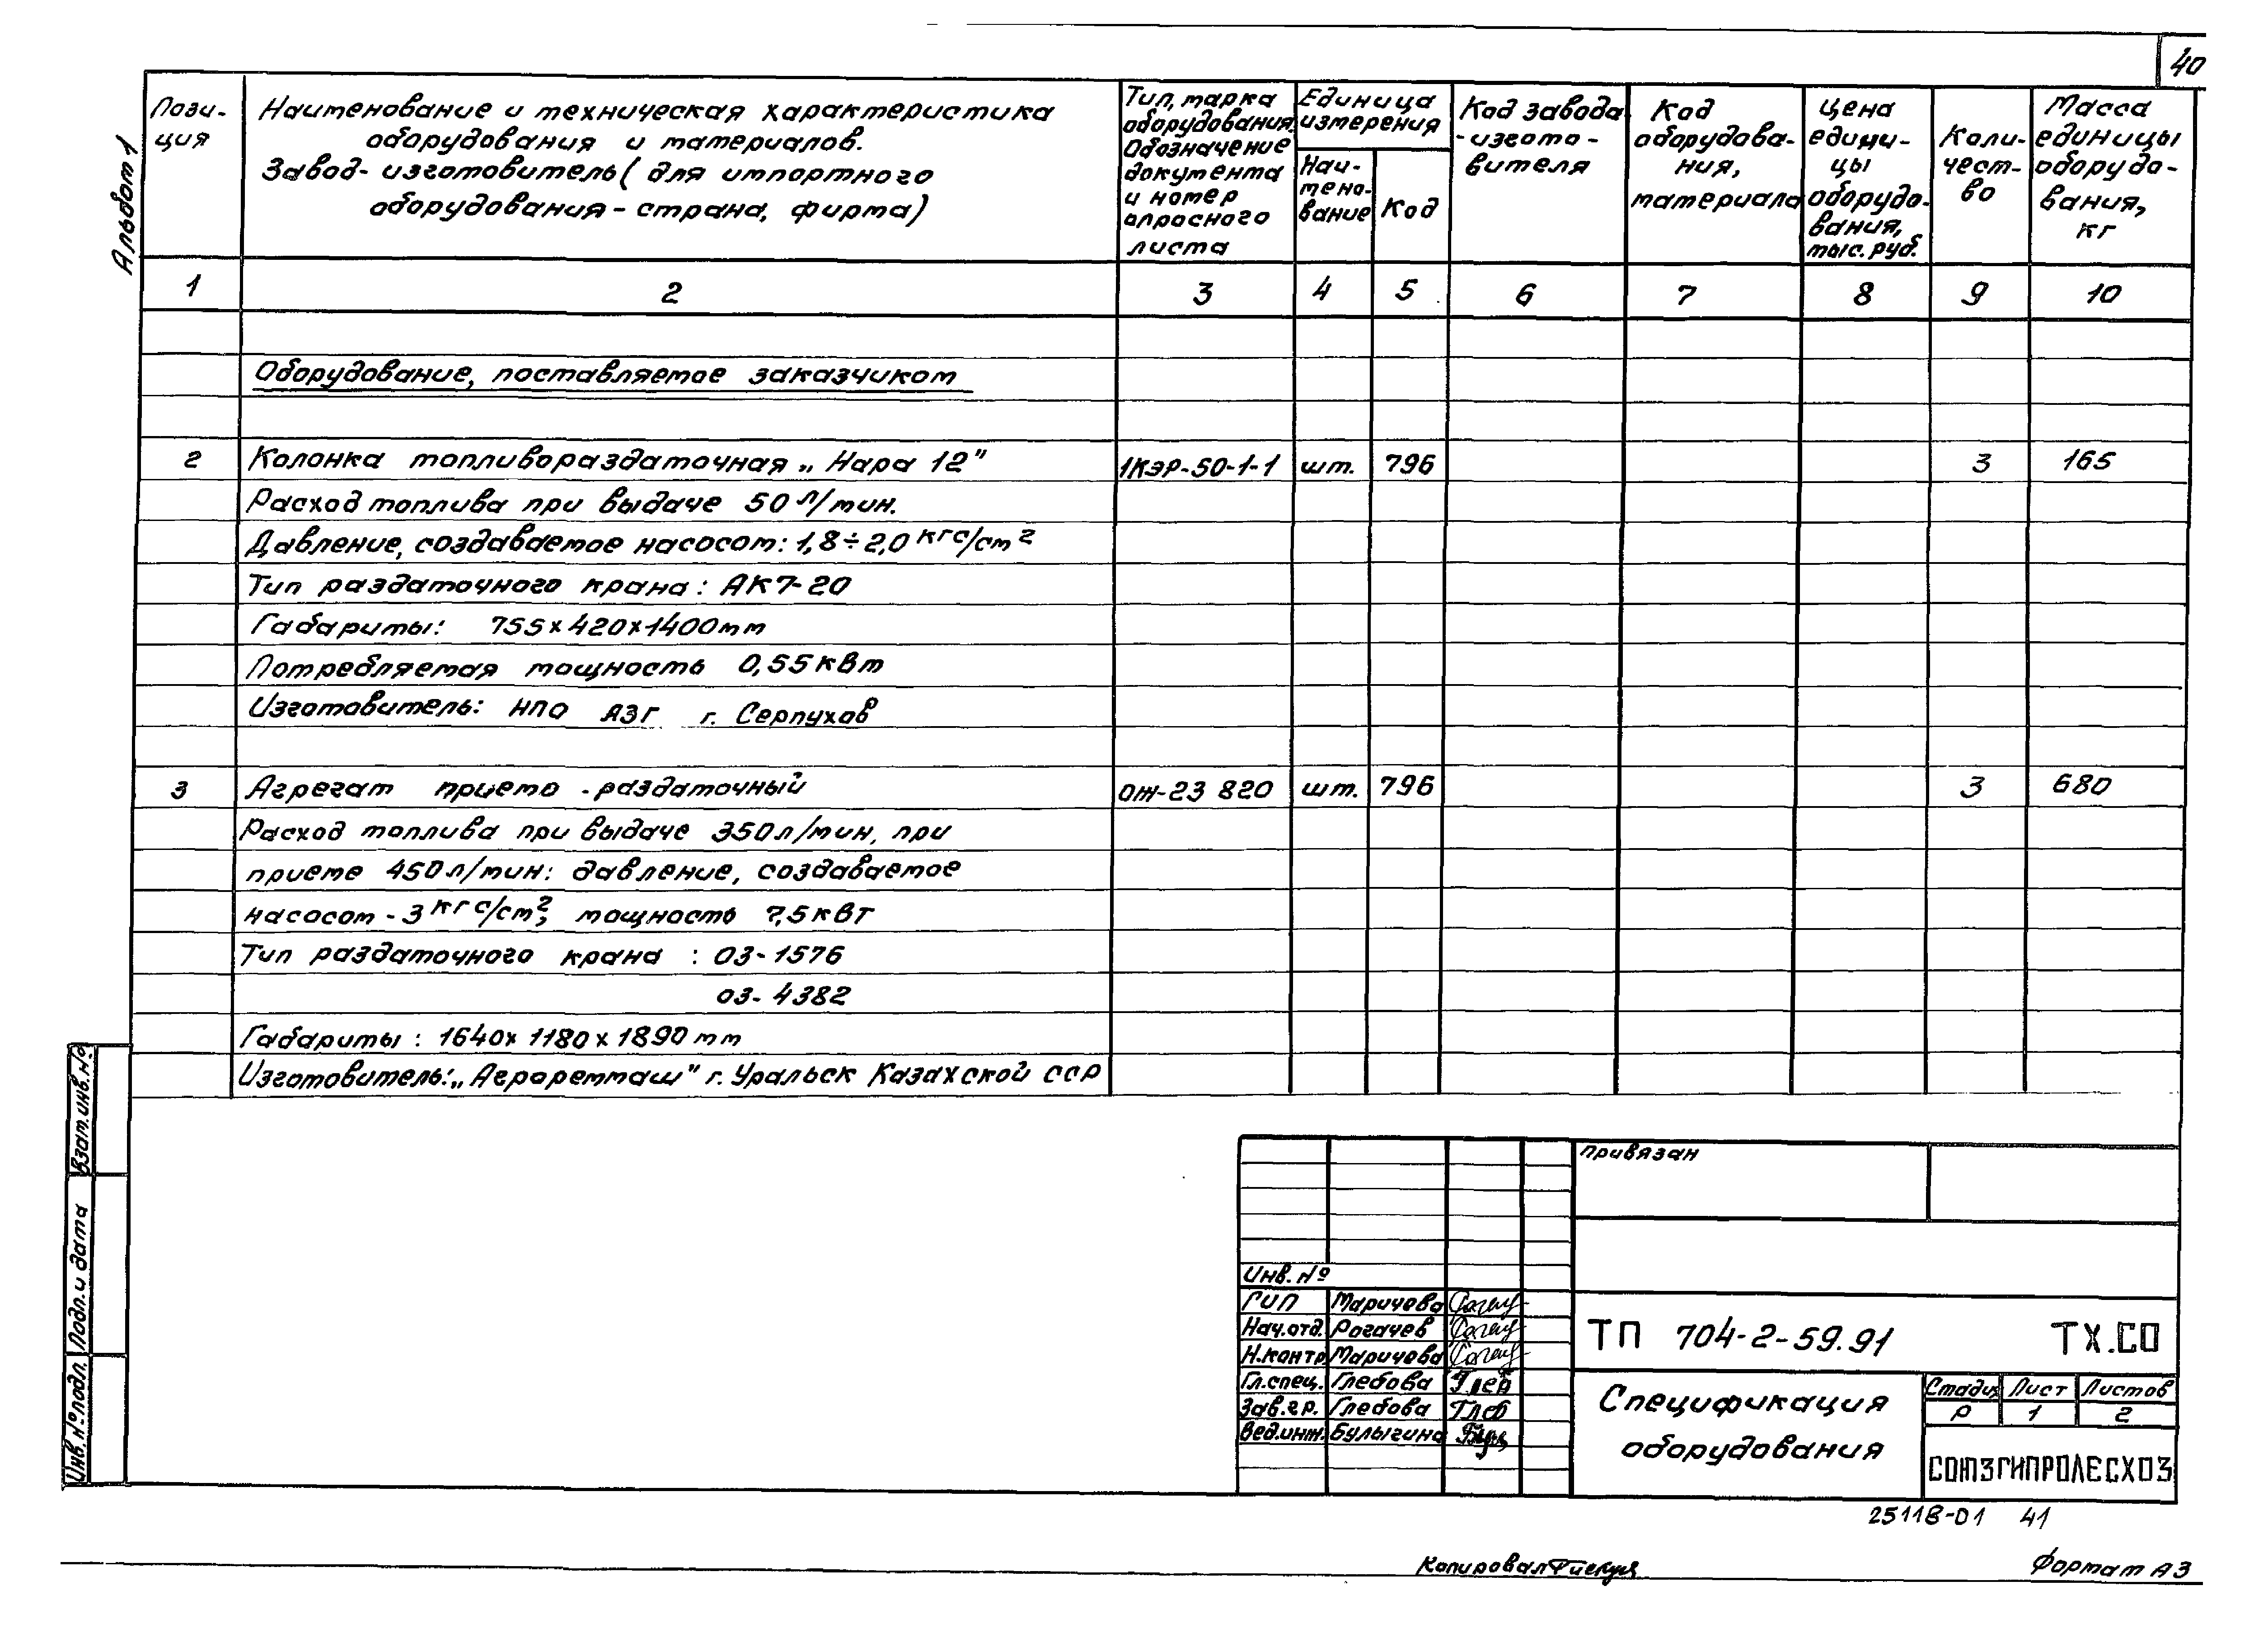 40
Альбом 1
Пози-
ция
Наименование и техническая характеристика
оборудования и материалов.
Завод-изготовитель (для импортного
оборудования - страна, фирма)
Тип, марка
оборудования.
Обозначение
документа
и номер
опросного
листа
Единица
измерения
Наи-
мено-
вание
Код
Код завода
-изгото-
вителя
Код
оборудова-
ния,
материала
Цена
едини-
цы
оборудо-
вания,
тыс. руб.
Коли-
чест-
во
Масса
единицы
оборудо-
вания,
кг
1 2 3 4 5 6 7 8 9 10
Оборудование, поставляемое заказчиком
2 Колонка топливораздаточная „Нара 12" 1КЭР-50-1-1 шт. 796 3 165
Расход топлива при выдаче 50 л/мин.
Давление, создаваемое насосом: 1,8÷2,0 кгс/см²
Тип раздаточного крана: АКТ-20
Габариты: 755х420х1400мм
Потребляемая мощность 0,55 кВт
Изготовитель: НПО АЗТ г. Серпухов
3 Агрегат приемо-раздаточный ОЖ-23 820 шт. 796 3 680
Расход топлива при выдаче 350л/мин, при
приеме 450л/мин: давление, создаваемое
насосом - 3 кгс/см², мощность 7,5 кВт
Тип раздаточного крана : ОЗ-1576
ОЗ-4382
Габариты : 1640х 1180 х 1890 мм
Изготовитель: „Агроремmaш" г. Уральск Казахской ССР
Взам. инв. №
Подп. и дата
Инв. № подл.
Привязан
Инв. №
ГИП Маричева
Нач.отд. Рогачев
Н.контр Маричева
Гл.спец. Глебова Глеб
Зав.гр. Глебова Глеб
Вед.инж. Булыгина
ТП 704-2-59.91 ТХ.СО
Спецификация
оборудования
Стадия Лист Листов
Р 1 2
СОЮЗГИПРОЛЕСХОЗ
25118-01 41
Копировал
Формат А3